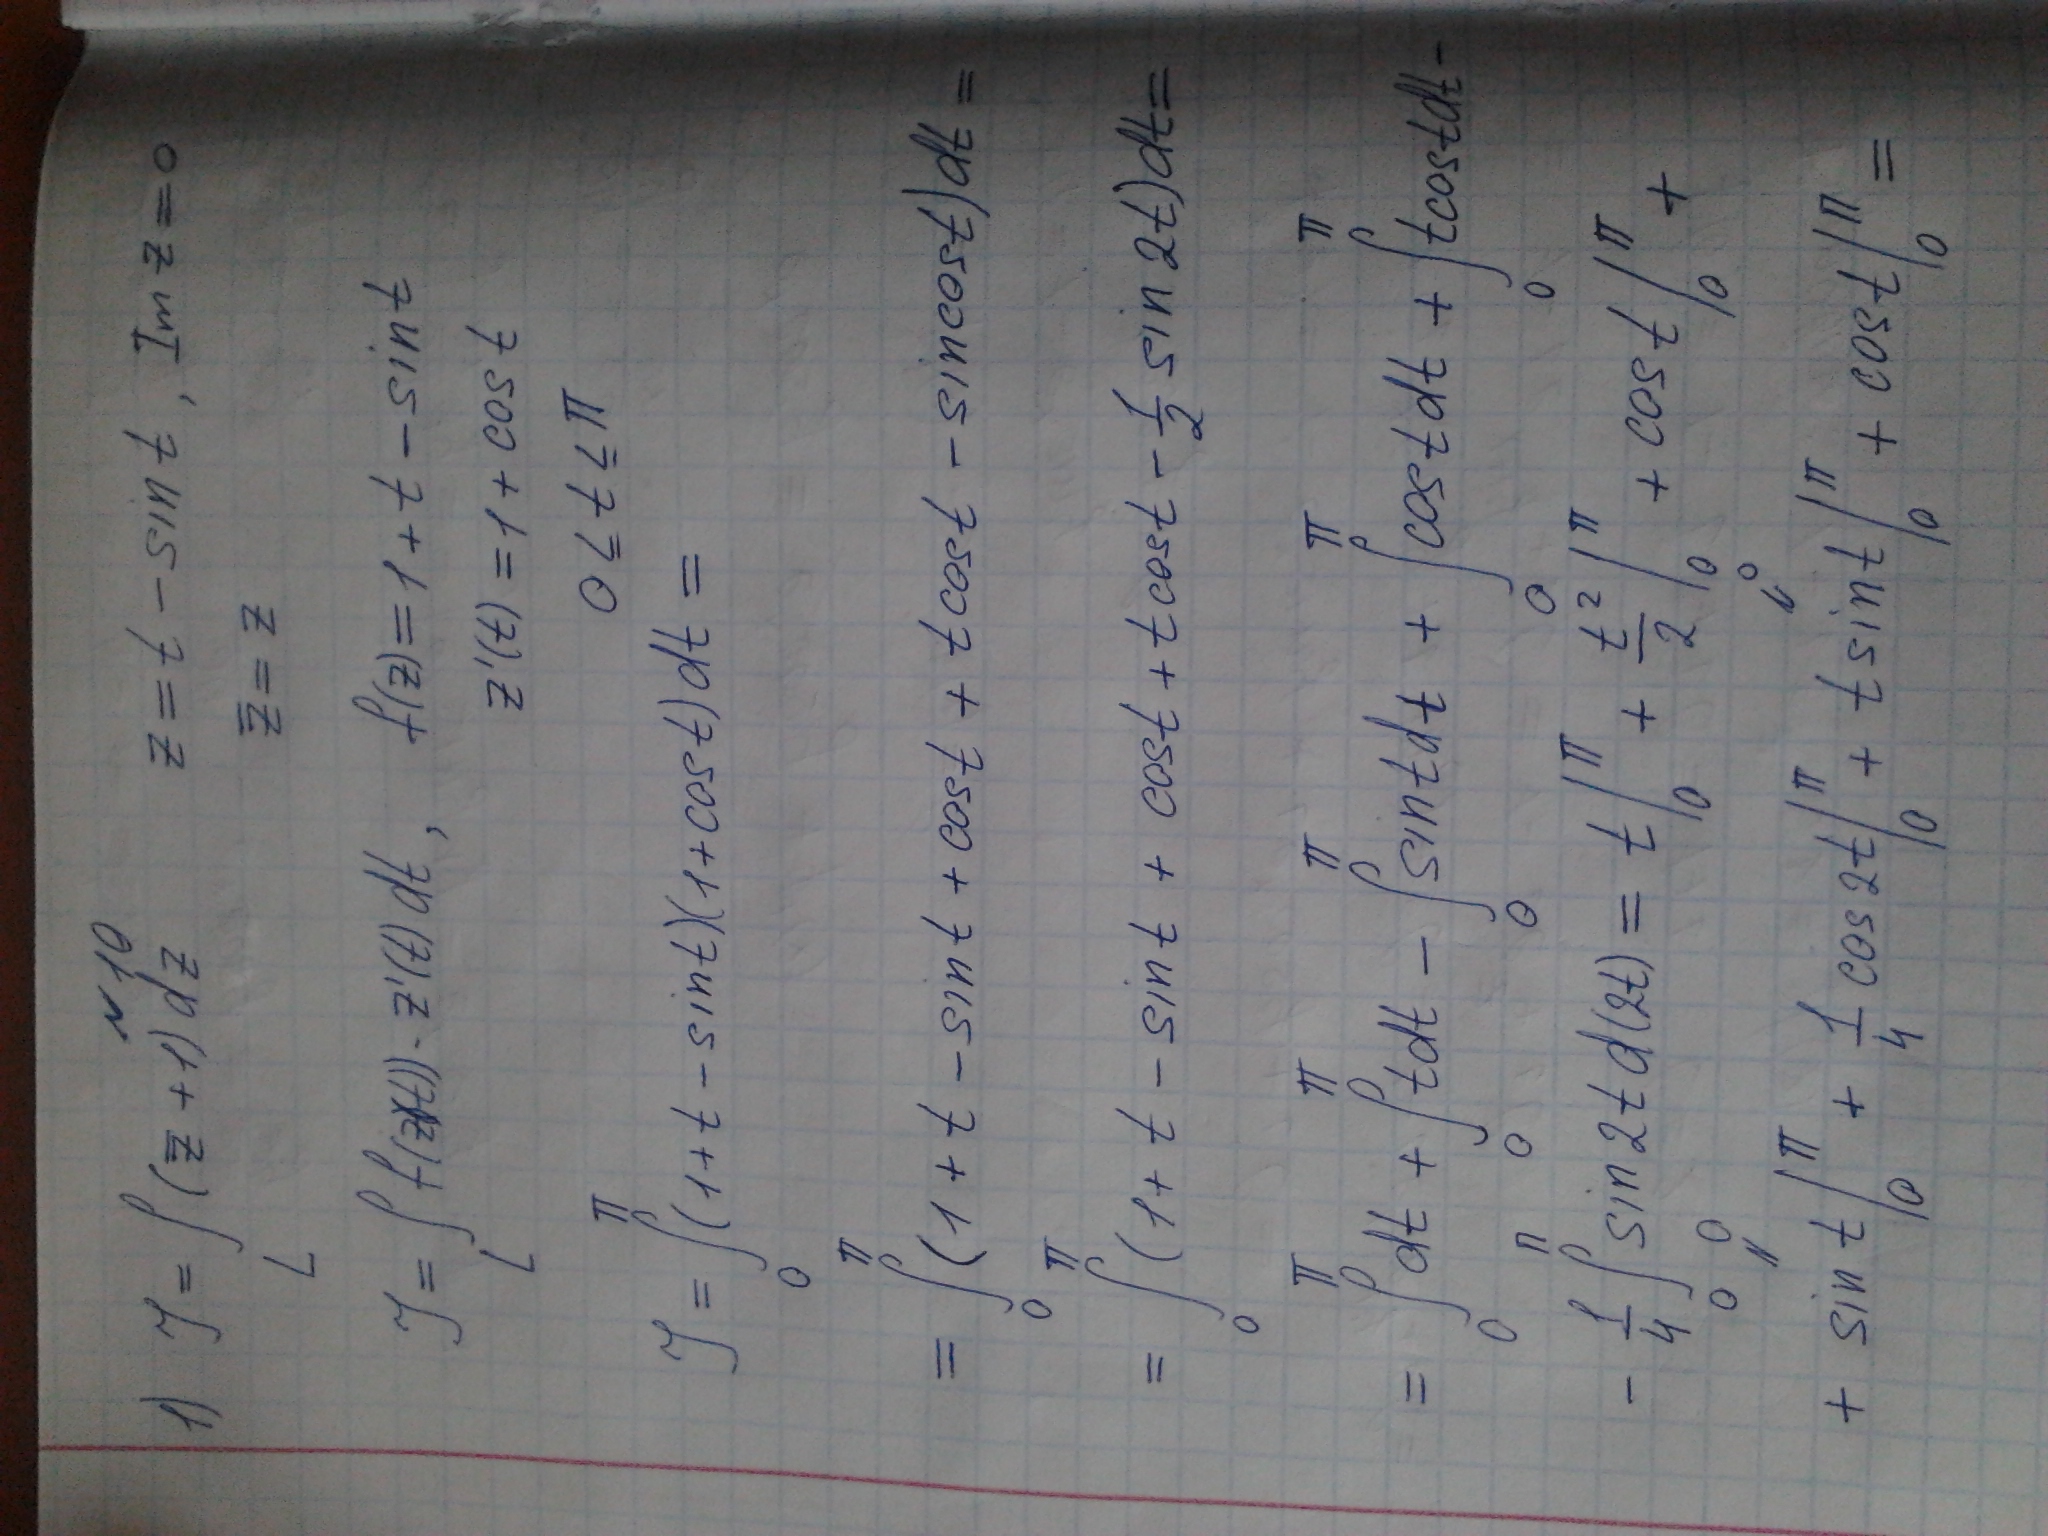 ~10
1) J = ∫_L (z̄ + 1) dz    z = t - sin t, Im z = 0
z̄ = z
J = ∫_L f(z(t)) · z'(t) dt,    f(z) = 1 + t - sin t
z'(t) = 1 + cos t
0 ≤ t ≤ π
J = ∫_0^π (1 + t - sin t)(1 + cos t) dt =
= ∫_0^π (1 + t - sin t + cos t + t cos t - sin cos t) dt =
= ∫_0^π (1 + t - sin t + cos t + t cos t - 1/2 sin 2t) dt =
= ∫_0^π dt + ∫_0^π t dt - ∫_0^π sin t dt + ∫_0^π cos t dt + ∫_0^π t cos t dt -
- 1/4 ∫_0^π sin 2t d(2t) = t |_0^π + t²/2 |_0^π + cos t |_0^π +
0    0
+ sin t |_0^π + 1/4 cos 2t |_0^π + t sin t |_0^π + cos t |_0^π =